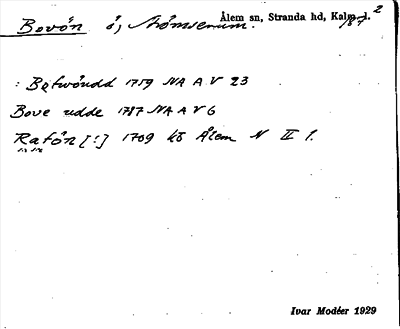 Ålem sn, Stranda hd, Kalm. l. 2
Bovön ö, Strömserum. 187
: Botwöudd 1759 NA A V 23
Bove udde 1787 NA A V 6
Ratön [!] 1709 Ko Ålem N II 1.
Ivar Modéer 1929